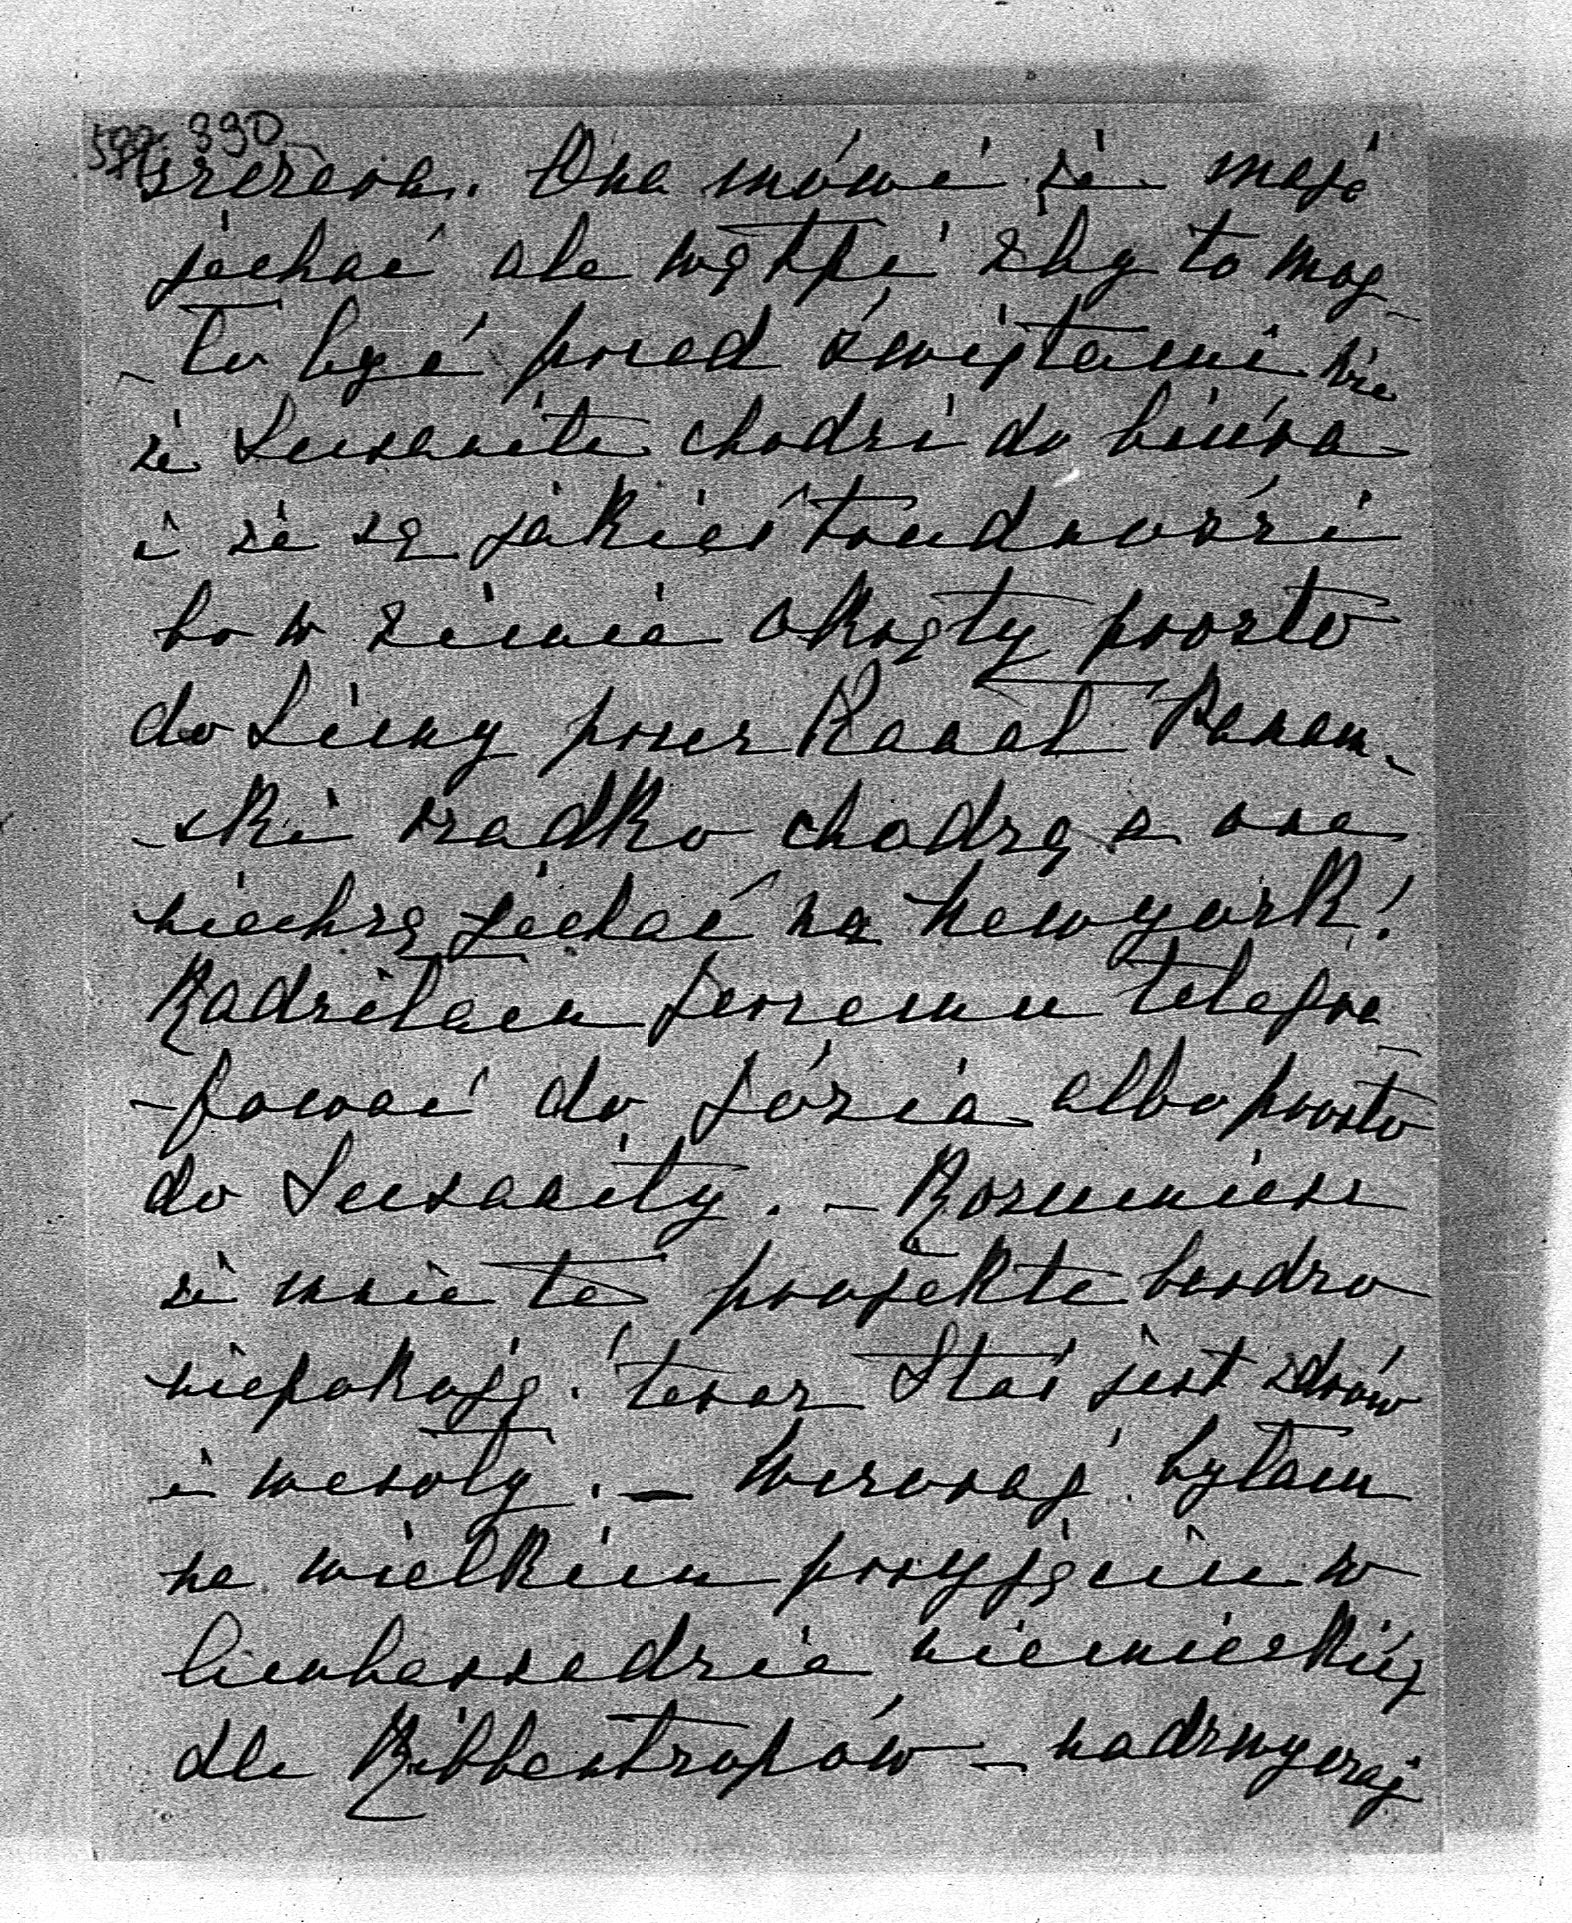 390
szczera. Ona mówi że mają
jechać ale wątpi żby to mog
-ło być przed świętami wie
że Susanita chodzi do biura
i że są jakieś trudności
bo w zimie okręty prosto
do Limy przez Kanał Panam-
-ski rzadko chodzą a one
niechzą jechać na Newyork!
Radziłam Jerzemu telegra
-fować do Józia albo prosto
do Susanity. – Rozumiesz
że mnie te projekte bardzo
niepokoją. teraz Staś jest zdrów
i wesoły. – Wczoraj byłam
na wielkim przyjęciu w
Embassadzie niemieckiéj
dla Ribbentropów – nadzwyczaj